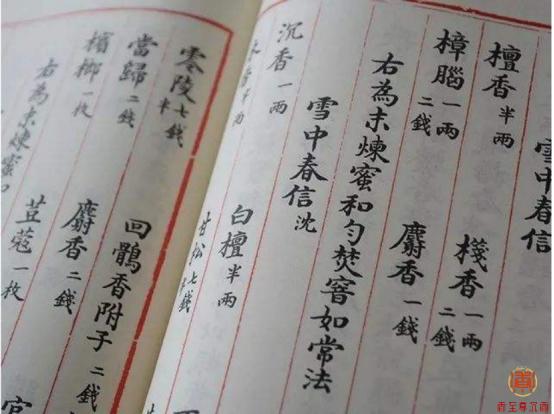 雪中春信
檀香半兩 棧香一兩二錢
樟腦一兩二錢 麝香一錢
右為末煉蜜和勻焚窨如常法
雪中春信沈
沉香一兩 白檀半兩
木香半兩 甘松七錢半
零陵七錢半 回鶻香附子二錢
當歸二錢 麝香二錢
檳榔一枚 荳蔻一枚
右為末煉蜜